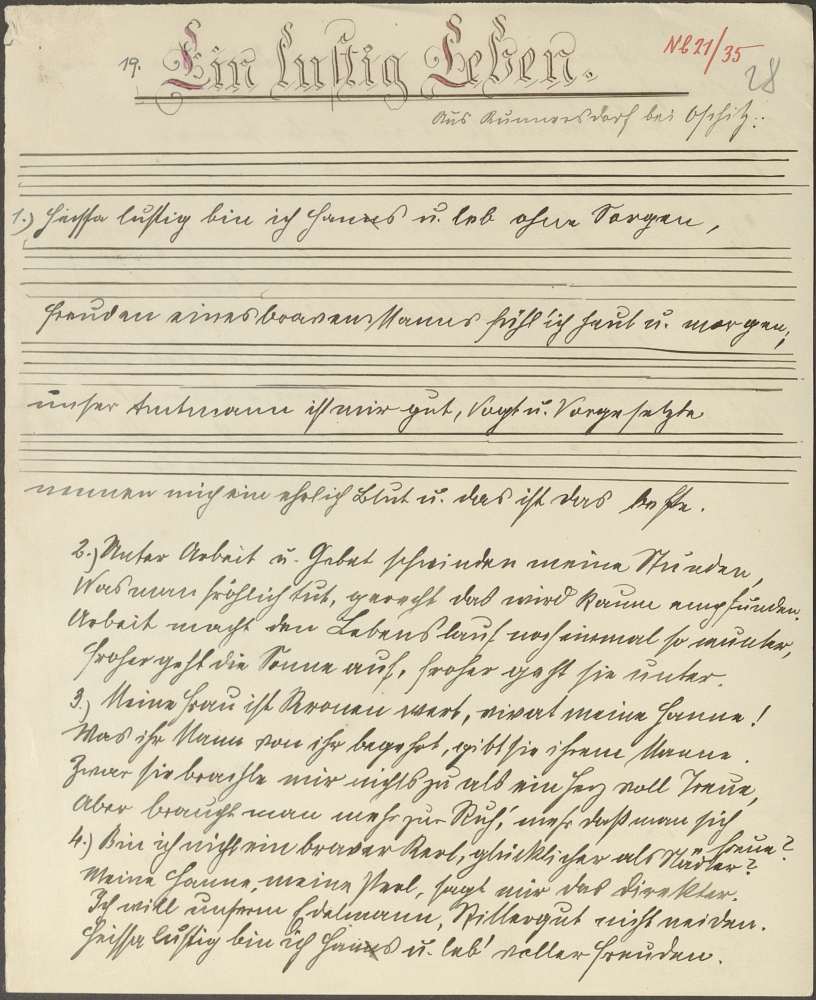 19. Ein lustig Leben.
N6 21/35
28
Aus Kunnersdorf bei Oschitz.:
1.) Heissa lustig bin ich Hanns u. leb ohne Sorgen,
Freuden eines braven Manns fühl ich heut u. morgen;
unser Amtmann ist mir gut, Vogt u. Vorgesetzte
nennen mich ein ehrlich Blut u. das ist das beste.
2.) Unter Arbeit u. Gebet schwinden meine Stunden,
Was man fröhlich tut, gerecht das wird kaum empfunden.
Arbeit macht den Lebenslauf noch einmal so munter,
froher geht die Sonne auf, froher geht sie unter.
3.) Meine Frau ist Kronen wert, vivat meine Hanne!
Was ihr Mann von ihr begehrt, gibt sie ihrem Manne.
Zwar sie brachte mir nichts zu als ein Herz voll Treue,
Aber braucht man mehr zur Ruh', mehr daß man sich
freue?
4.) Bin ich nicht ein braver Kerl, glücklicher als Städter?
Meine Hanne, meine Perl, sagt mir das direkter.
Ich will unserm Edelmann, Rittergut nicht neiden.
Heissa lustig bin ich Hanns u. leb' voller Freuden.